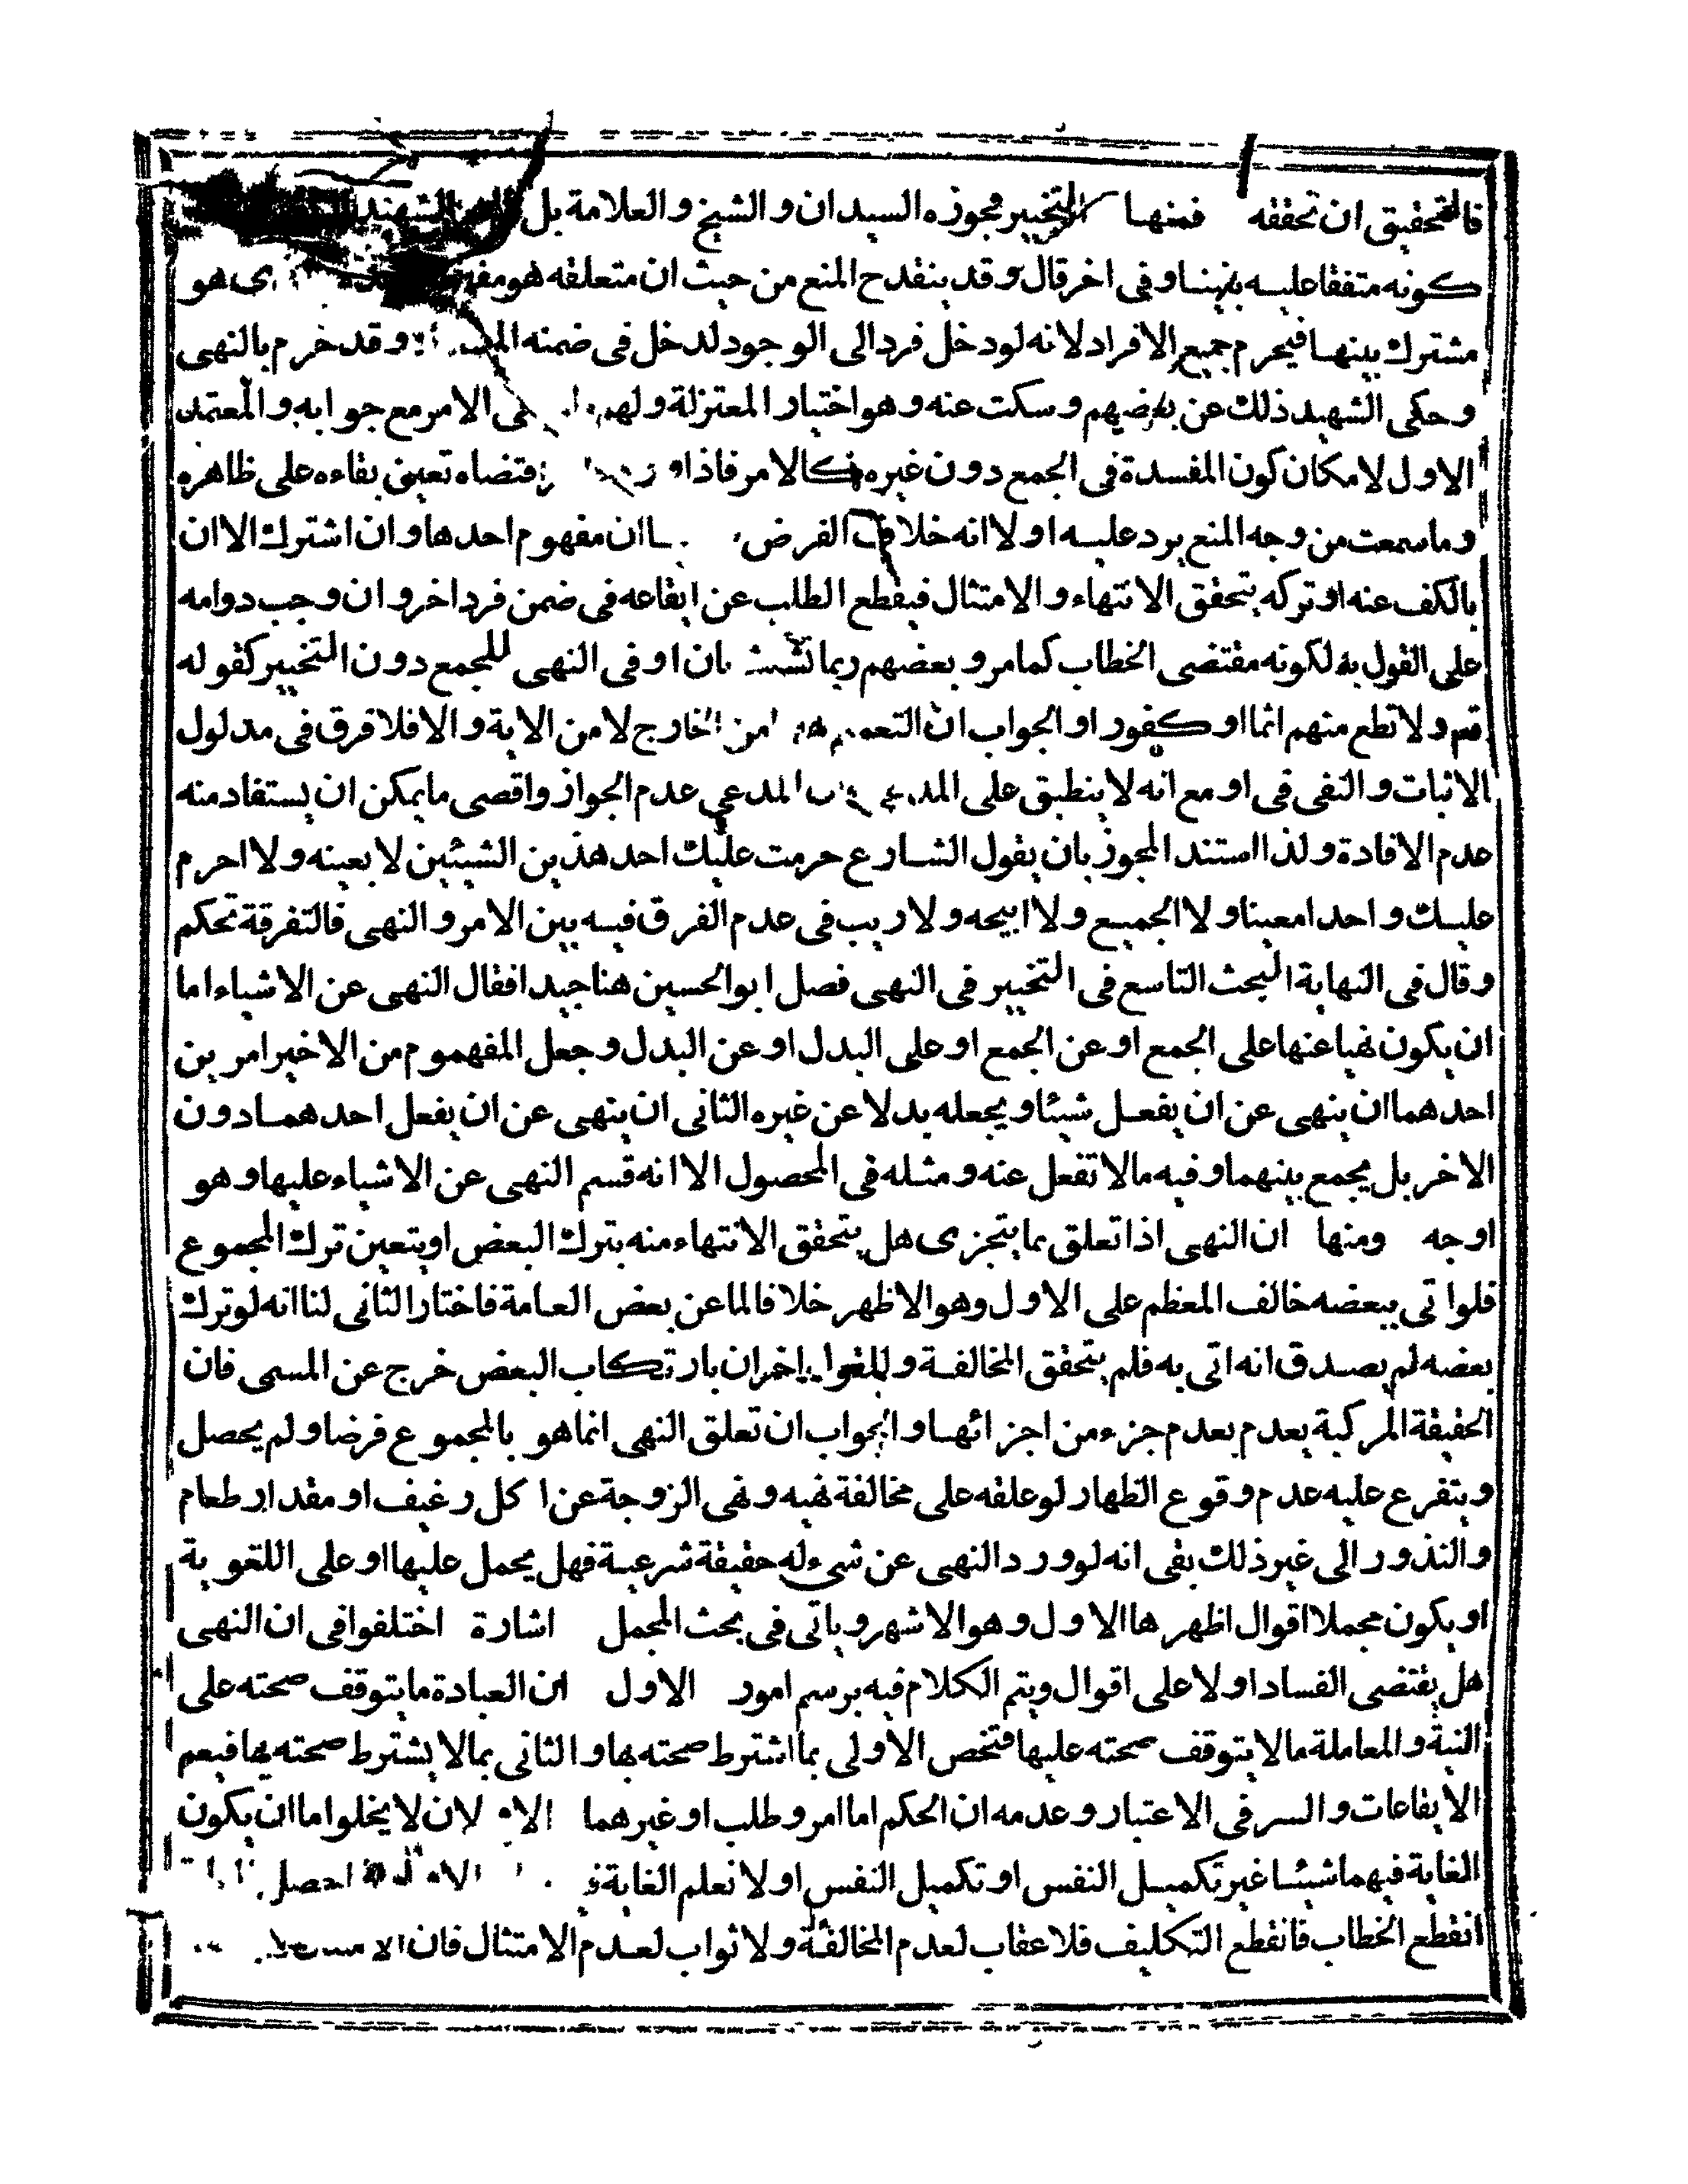 فالتحقيق ان تحققه فمنها التخيير فجوزه السيدان و الشيخ و العلامة بل الشهيد
كونه متفقا عليه بيننا و فى اخر قال وقد ينقدح المنع من حيث ان متعلقه هو ى هو
مشترك بينها فيحرم جميع الافراد لانه لو دخل فرد الى الوجود لدخل فى ضمنه وقد خرم بالنهى
و حكى الشهيد ذلك عن بعضهم و سكت عنه و هو اختيار المعتزلة و لهم الامر مع جوابه و المعتمد
الاول لامكان كون المفسدة فى الجمع دون غيره كالامر فاذا اقتضاه تعين بقاءه على ظاهره
و ما سمعت من وجه المنع يرد عليه اولا انه خلاف الفرض ان مفهوم احدها و ان اشترك الا ان
بالكف عنه او تركه يتحقق الانتهاء و الامتثال فيقطع الطلب عن ايقاعه فى ضمن فرد اخر و ان وجب دوامه
على القول به لكونه مقتضى الخطاب كما مر و بعضهم ربما تشبث بان او فى النهى للجمع دون التخيير كقوله
تعم و لا تطع منهم اثما او كفورا و الجواب ان التعميم من الخارج لا من الاية و الا فلا فرق فى مدلول
الاثبات و النفى فى او مع انه لا ينطبق على المدعى المدعى عدم الجواز و اقصى ما يمكن ان يستفاد منه
عدم الافادة و لذا استند المجوز بان يقول الشارع حرمت عليك احد هذين الشيئين لا بعينه و لا احرم
عليك واحدا معينا و لا الجميع و لا ابيحه و لا ريب فى عدم الفرق فيه بين الامر و النهى فالتفرقة تحكم
و قال فى النهاية البحث التاسع فى التخيير فى النهى فصل ابو الحسين هنا جيدا فقال النهى عن الاشياء اما
ان يكون نهيا عنها على الجمع او عن الجمع او على البدل او عن البدل و جعل المفهموم من الاخير امرين
احدهما ان ينهى عن ان يفعل شيئا و يجعله بدلا عن غيره الثانى ان ينهى عن ان يفعل احدهما دون
الاخر بل يجمع بينهما و فيه ما لا تفعل عنه و مثله فى المحصول الا انه قسم النهى عن الاشياء عليها و هو
اوجه ومنها ان النهى اذا تعلق بما يتجزى هل يتحقق الانتهاء منه بترك البعض او يتعين ترك المجموع
فلو اتى ببعضه خالف المعظم على الاول وهو الاظهر خلافا لما عن بعض العامة فاختار الثانى لنا انه لو ترك
بعضه لم يصدق انه اتى به فلم يتحقق المخالفة و اخر ان بارتكاب البعض خرج عن المسمى فان
الحقيقة المركبة يعدم بعدم جزء من اجزائها و الجواب ان تعلق النهى انما هو بالمجموع فرضا و لم يحصل
و يتفرع عليه عدم وقوع الظهار لو علقه على مخالفة نهيه و نهى الزوجة عن اكل رغيف او مقدار طعام
و النذور الى غير ذلك بقى انه لو ورد النهى عن شىء له حقيقة شرعية فهل يحمل عليها او على اللغوية
او يكون مجملا اقوال اظهرها الاول و هو الاشهر و ياتى فى بحث المجمل اشارة اختلفوا فى ان النهى
هل يقتضى الفساد او لا على اقوال و يتم الكلام فيه برسم امور الاول ان العبادة ما يتوقف صحته على
النية و المعاملة ما لا يتوقف صحته عليها فتخص الاولى بما اشترط صحته بها و الثانى بما لا يشترط صحته بها فيعم
الايقاعات و السر فى الاعتبار و عدمه ان الحكم اما امر و طلب او غيرهما لان لا يخلوا ما ان يكون
الغاية فيهما شيئا غير تكميل النفس او تكميل النفس او لا نعلم الغاية
انقطع الخطاب فانقطع التكليف فلا عقاب لعدم المخالفة و لا ثواب لعدم الامتثال فان